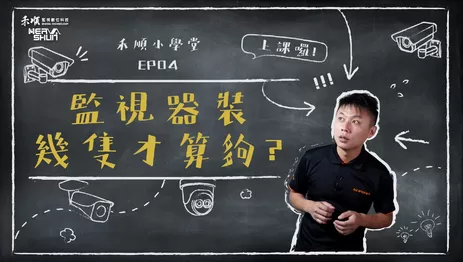 禾順
NERVA
SHUN
禾順小學堂
EP04
上課囉!
!!!
監視器裝
幾隻才算夠?